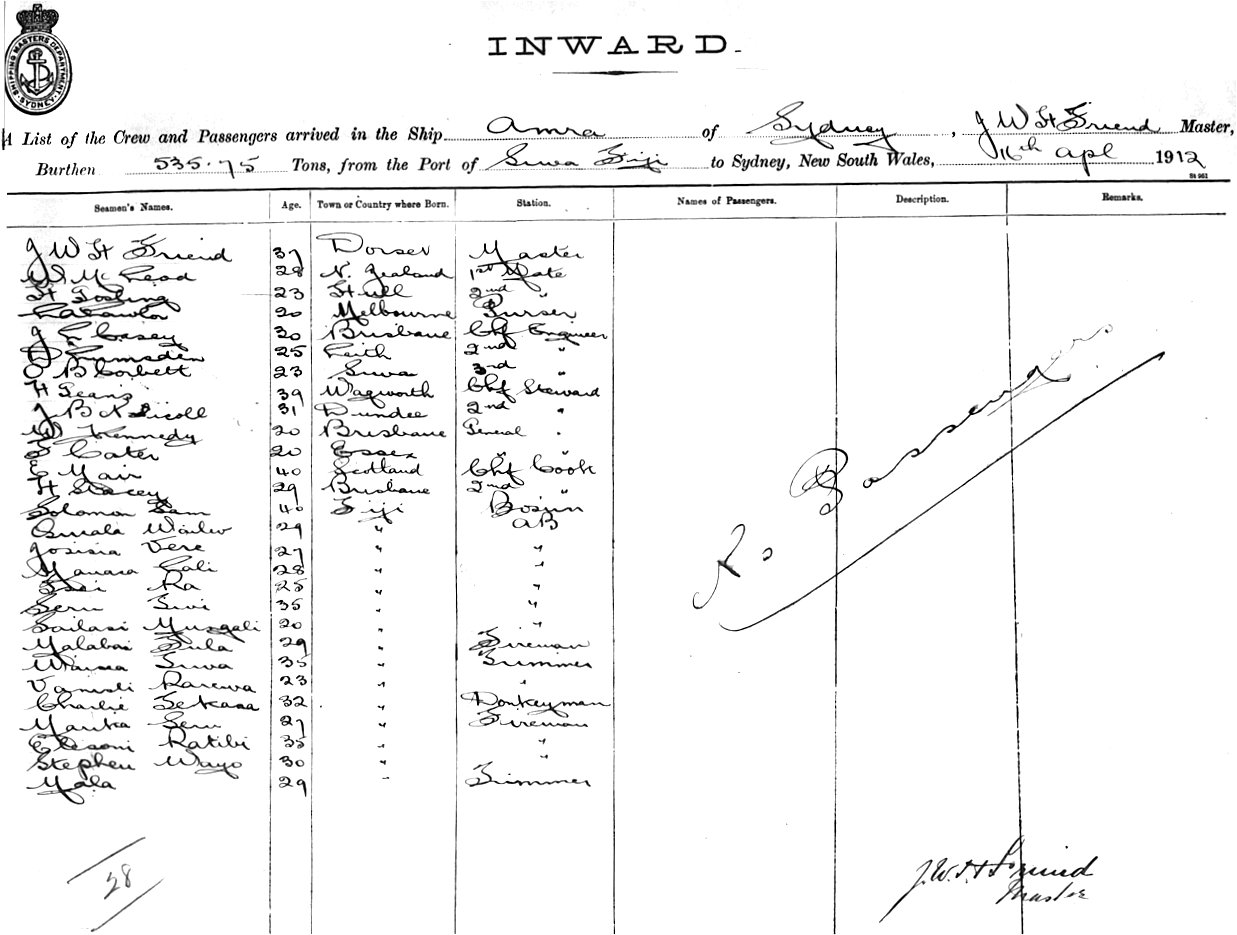 SHIPPING MASTERS DEPARTMENT
SYDNEY
INWARD.
A List of the Crew and Passengers arrived in the Ship Amra of Sydney, J W H Friend Master,
Burthen 535.75 Tons, from the Port of Suva Fiji to Sydney, New South Wales, 16th Apl 1912
St 961
Seamen's Names. Age. Town or Country where Born. Station. Names of Passengers. Description. Remarks.
J W H Friend 37 Dorset Master
W McLeod 28 N. Zealand 1st Mate
H Gosling 23 Hull 2nd "
20 Melbourne Purser
J L Casey 30 Brisbane Chf Engineer
Lumsden 25 Leith 2nd "
O B Corbett 23 Suva 3rd "
H 39 Chf Steward
J B Nicoll 31 Dundee 2nd "
W Kennedy 20 Brisbane General "
Cater 20 Essex "
E Mair 40 Scotland Chf Cook
H Stacey 29 Brisbane 2nd "
Solomon 40 Fiji Bosun
29 " AB
Josisia Vere 27 " "
Manasa 28 " "
Ra 25 " "
Seru 35 " "
Sailasi 20 " "
29 " Fireman
Waisea Suva 35 " Trimmer
23 " "
Charlie 32 " Donkeyman
Marika Seru 27 " Fireman
Ratibi 35 " "
Stephen 30 " "
Mala 29 " Trimmer
No Passengers
28
J.W.H Friend
Master